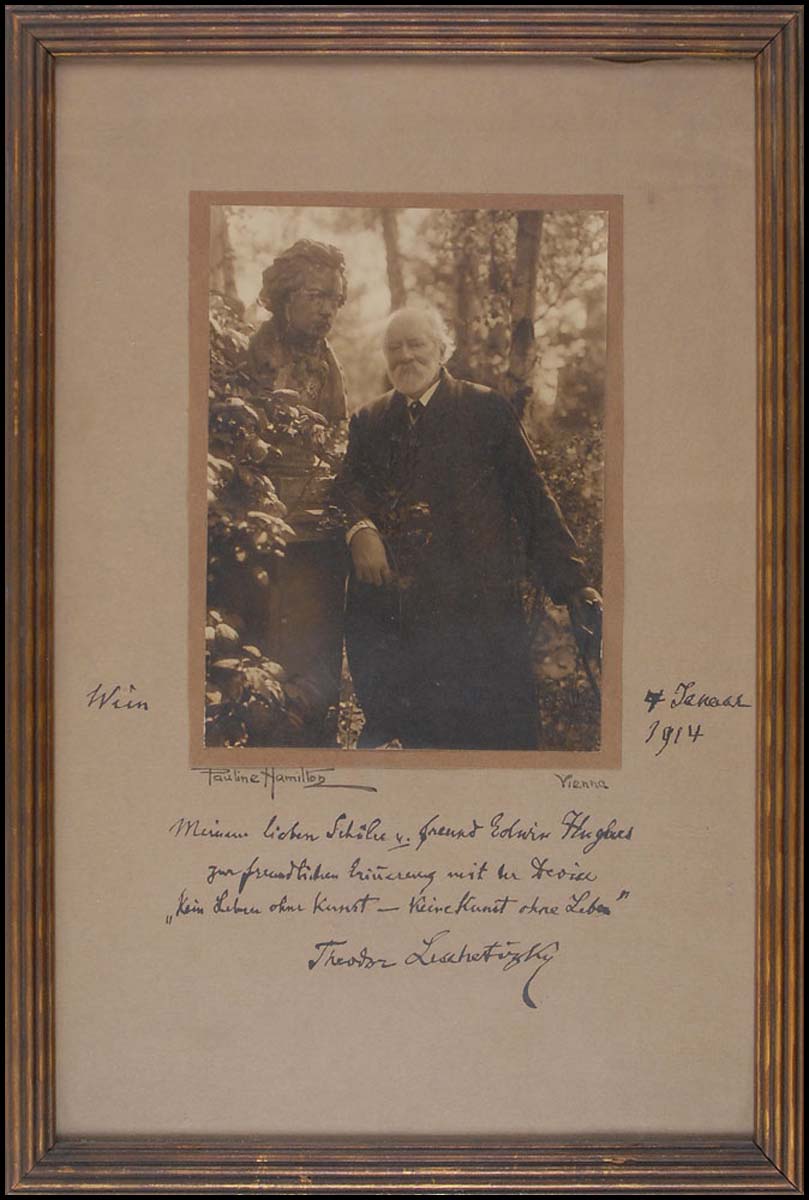 Wien
4 Januar
1914
Pauline Hamilton
Vienna
Meinem lieben Schüler u. freund Edwin Hughes
zur freundlichen Erinnerung mit der Devise
„Kein Leben ohne Kunst — Keine Kunst ohne Leben”
Theodor Leschetizky